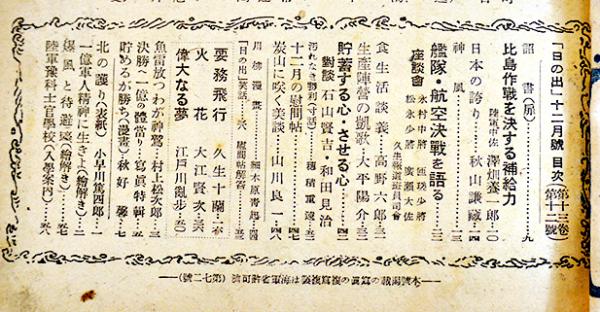 「日の出」十二月號 目次 (第十三卷 第十二號)
詔書(扉)
比島作戰を決する補給力 陸軍中佐 澤畑養一郎…一〇
日本の誇り…秋山謙藏…四
神風…三
艦隊・航空決戰を語る
座談會 松永少將 廣瀬大佐
食生活談義…高野六郎…三
生産陣營の凱歌…大平陽介…三
貯蓄する心・させる心
對談 石山賢吉・和田見治…四二
汚れなき勝利(寸話)…穗積重遠…
十二月の慰問帖
炭山に咲く美談…山川良一…四八
川柳漫畫…細木原青起…
「日の出」笑話
要務飛行 久生十蘭
火花 大江賢次
偉大なる夢 江戸川亂歩
魚雷放つわが神鷲…村上松次郎…三
決勝へ一億の體當り…寫眞特輯…五
貯めるが勝ち(漫畫)…秋好馨…七
北の護り(表紙)…小早川篤四郎…一
一億軍人精神に生きよ(繪解き)…三
爆風と待避壕(繪解き)
陸軍豫科士官學校(入學案内)
本號掲載の寫眞の複寫複製は海軍省許可濟(第七二號)